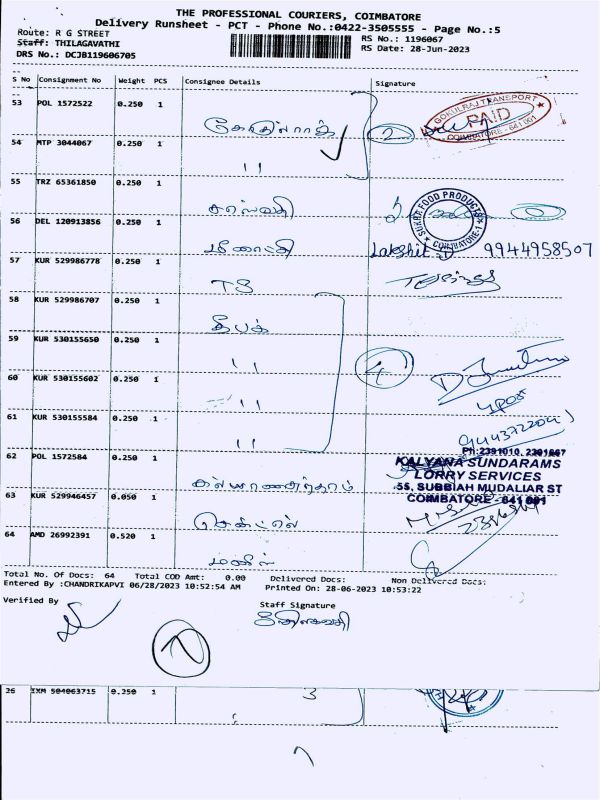 THE PROFESSIONAL COURIERS, COIMBATORE
Delivery Runsheet - PCT - Phone No.:0422-3505555 - Page No.:5
Route: R G STREET
RS No.: 1196067
Staff: THILAGAVATHI
RS Date: 28-Jun-2023
DRS No.: DCJB119606705
S No Consignment No Weight PCS Consignee Details Signature
53 POL 1572522 0.250 1
2
GOKULRAJ TRANSPORT PAID COIMBATORE - 641 001
54 MTP 3044067 0.250 1
11
55 TRZ 65361850 0.250 1
சரஸ்வதி
SUKRA FOOD PRODUCTS COIMBATORE-1
56 DEL 120913856 0.250 1
மீனாட்சி Lakshit 9944958507
57 KUR 529986778 0.250 1
TS
58 KUR 529986707 0.250 1
தீபக்
59 KUR 530155650 0.250 1
11
4
60 KUR 530155602 0.250 1
11
61 KUR 530155584 0.250 1
11
Ph:2391010, 2201667
62 POL 1572584 0.250 1
KALYANA SUNDARAMS
LORRY SERVICES
55, SUBBIAH MUDALIAR ST
COIMBATORE - 641 001
63 KUR 529946457 0.050 1
64 AMD 26992391 0.520 1
Total No. Of Docs: 64 Total COD Amt: 0.00 Delivered Docs: Non Delivered Docs:
Entered By :CHANDRIKAPVI 06/28/2023 10:52:54 AM Printed On: 28-06-2023 10:53:22
Verified By Staff Signature
26 IXM 504063715 0.250 1
3